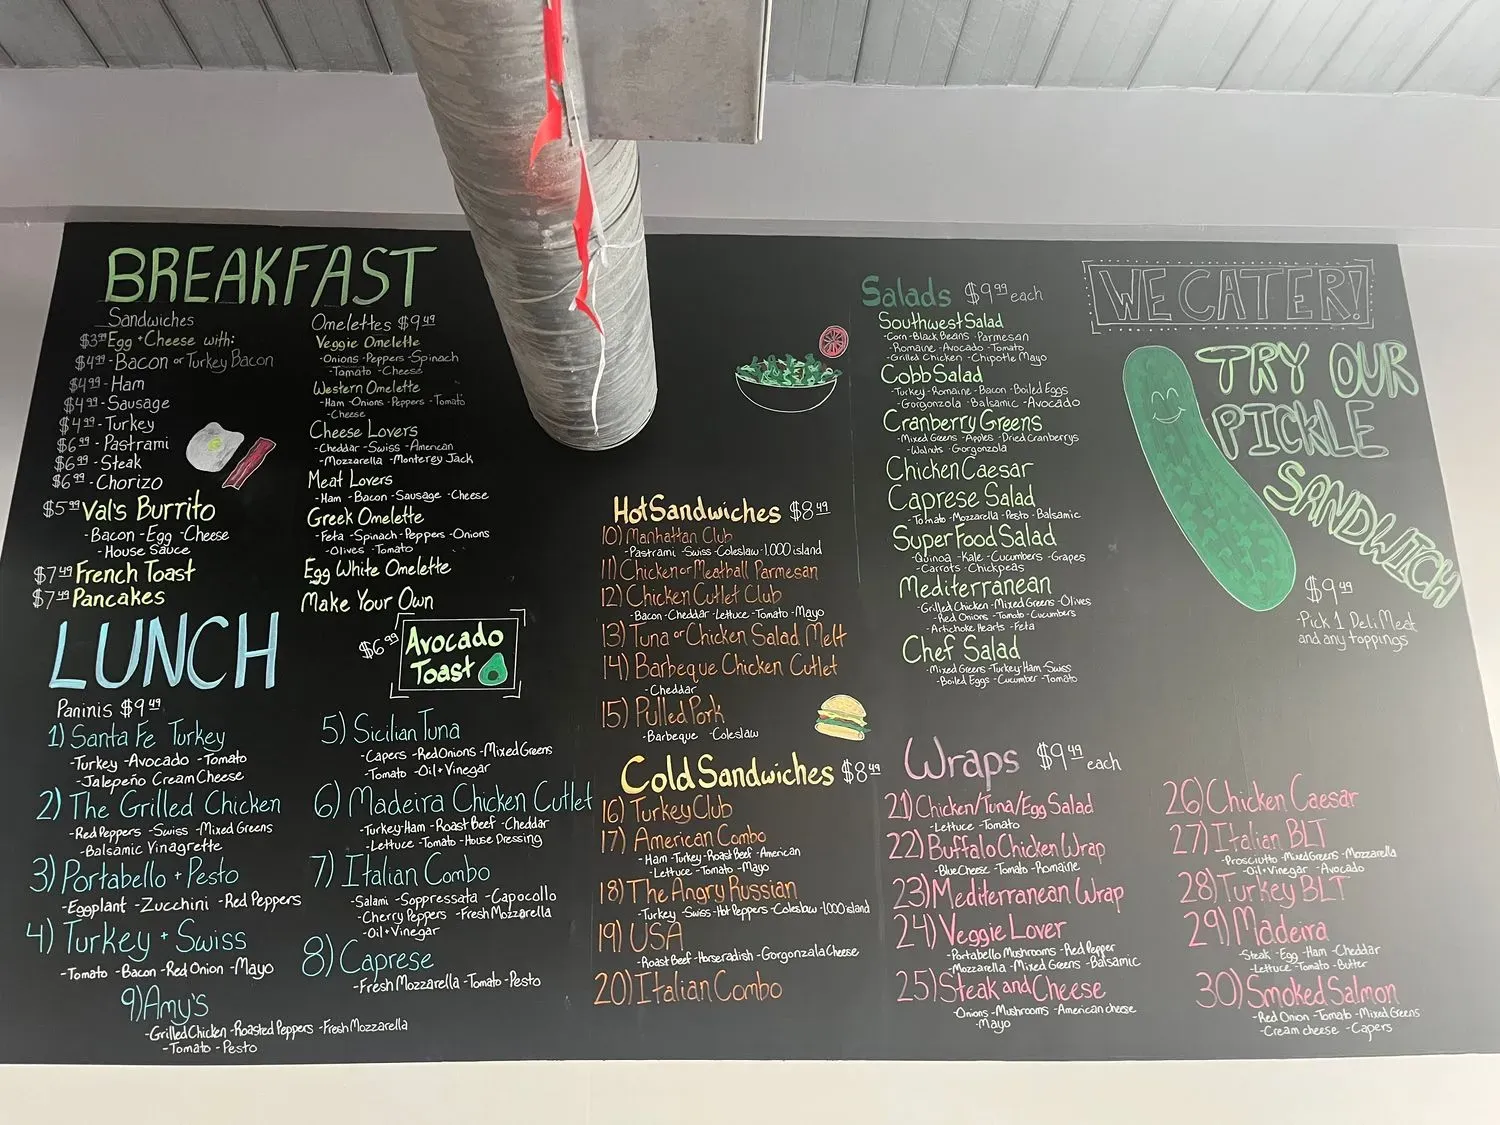 BREAKFAST
Sandwiches
$3.99 Egg + Cheese with:
$4.99 - Bacon or Turkey Bacon
$4.99 - Ham
$4.99 - Sausage
$4.99 - Turkey
$6.99 - Pastrami
$6.99 - Steak
$6.99 - Chorizo
$5.99 Val's Burrito
- Bacon - Egg - Cheese
- House Sauce
$7.49 French Toast
$7.49 Pancakes
Omelettes $9.49
Veggie Omelette
- Onions - Peppers - Spinach
- Tomato - Cheese
Western Omelette
- Ham - Onions - Peppers - Tomato
- Cheese
Cheese Lovers
- Cheddar - Swiss - American
- Mozzarella - Monterey Jack
Meat Lovers
- Ham - Bacon - Sausage - Cheese
Greek Omelette
- Feta - Spinach - Peppers - Onions
- Olives - Tomato
Egg White Omelette
Make Your Own
$6.99 Avocado
Toast
LUNCH
Paninis $9.49
1) Santa Fe Turkey
- Turkey - Avocado - Tomato
- Jalepeño Cream Cheese
2) The Grilled Chicken
- Red Peppers - Swiss - Mixed Greens
- Balsamic Vinagrette
3) Portabello + Pesto
- Eggplant - Zucchini - Red Peppers
4) Turkey + Swiss
- Tomato - Bacon - Red Onion - Mayo
5) Sicilian Tuna
- Capers - Red Onions - Mixed Greens
- Tomato - Oil + Vinegar
6) Madeira Chicken Cutlet
- Turkey - Ham - Roast Beef - Cheddar
- Lettuce - Tomato - House Dressing
7) Italian Combo
- Salami - Soppressata - Capocollo
- Cherry Peppers - Fresh Mozzarella
- Oil + Vinegar
8) Caprese
- Fresh Mozzarella - Tomato - Pesto
9) Amy's
- Grilled Chicken - Roasted Peppers - Fresh Mozzarella
- Tomato - Pesto
Hot Sandwiches $8.49
10) Manhattan Club
- Pastrami - Swiss - Coleslaw - 1,000 island
11) Chicken or Meatball Parmesan
12) Chicken Cutlet Club
- Bacon - Cheddar - Lettuce - Tomato - Mayo
13) Tuna or Chicken Salad Melt
14) Barbeque Chicken Cutlet
- Cheddar
15) Pulled Pork
- Barbeque - Coleslaw
Cold Sandwiches $8.49
16) Turkey Club
17) American Combo
- Ham - Turkey - Roast Beef - American
- Lettuce - Tomato - Mayo
18) The Angry Russian
- Turkey - Swiss - Hot Peppers - Coleslaw - 1,000 island
19) USA
- Roast Beef - Horseradish - Gorgonzala Cheese
20) Italian Combo
Salads $9.99 each
Southwest Salad
- Corn - Black Beans - Parmesan
- Romaine - Avocado - Tomato
- Grilled Chicken - Chipotle Mayo
Cobb Salad
- Turkey - Romaine - Bacon - Boiled Eggs
- Gorgonzola - Balsamic - Avocado
Cranberry Greens
- Mixed Greens - Apples - Dried Cranberrys
- Walnuts - Gorgonzola
Chicken Caesar
Caprese Salad
- Tomato - Mozzarella - Pesto - Balsamic
Super Food Salad
- Quinoa - Kale - Cucumbers - Grapes
- Carrots - Chickpeas
Mediterranean
- Grilled Chicken - Mixed Greens - Olives
- Red Onions - Tomato - Cucumbers
- Artichoke Hearts - Feta
Chef Salad
- Mixed Greens - Turkey - Ham - Swiss
- Boiled Eggs - Cucumber - Tomato
WE CATER!
TRY OUR
PICKLE
SANDWICH
$9.49
- Pick 1 Deli Meat
and any toppings
Wraps $9.49 each
21) Chicken/Tuna/Egg Salad
- Lettuce - Tomato
22) Buffalo Chicken Wrap
- Blue Cheese - Tomato - Romaine
23) Mediterranean Wrap
24) Veggie Lover
- Portabello Mushrooms - Red Pepper
- Mozzarella - Mixed Greens - Balsamic
25) Steak and Cheese
- Onions - Mushrooms - American cheese
- Mayo
26) Chicken Caesar
27) Italian BLT
- Prosciutto - Mixed Greens - Mozzarella
- Oil + Vinegar - Avocado
28) Turkey BLT
29) Madeira
- Steak - Egg - Ham - Cheddar
- Lettuce - Tomato - Butter
30) Smoked Salmon
- Red Onion - Tomato - Mixed Greens
- Cream cheese - Capers